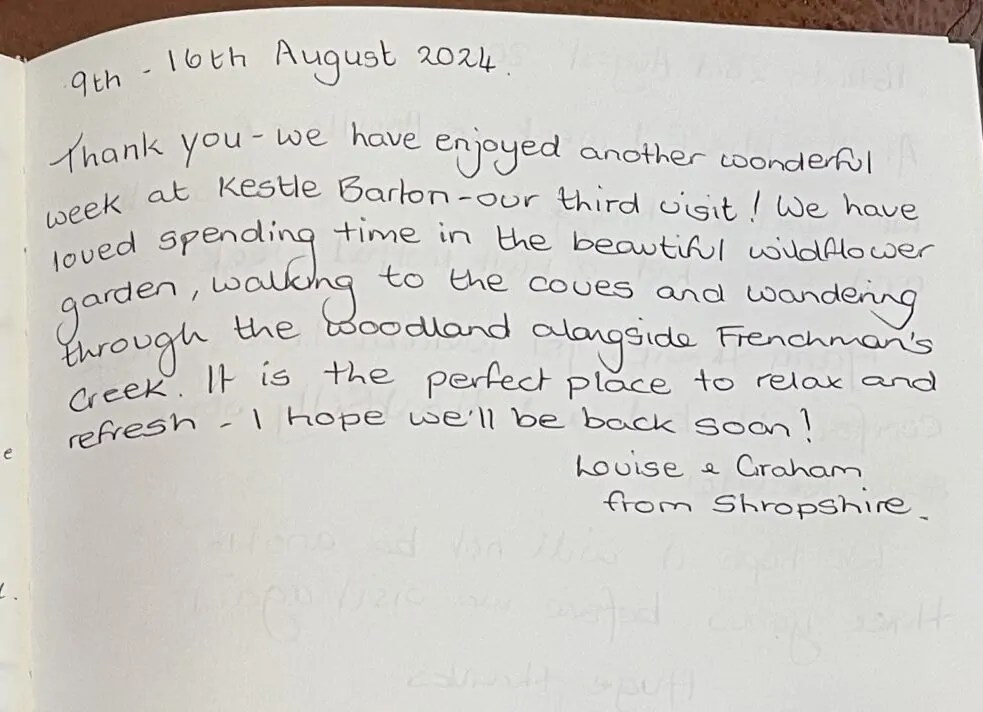 9th - 16th August 2024.
Thank you - we have enjoyed another wonderful
week at Kestle Barton - our third visit! We have
loved spending time in the beautiful wildflower
garden, walking to the coves and wandering
through the woodland alongside Frenchman's
Creek. It is the perfect place to relax and
refresh - I hope we'll be back soon!
Louise & Graham
from Shropshire.